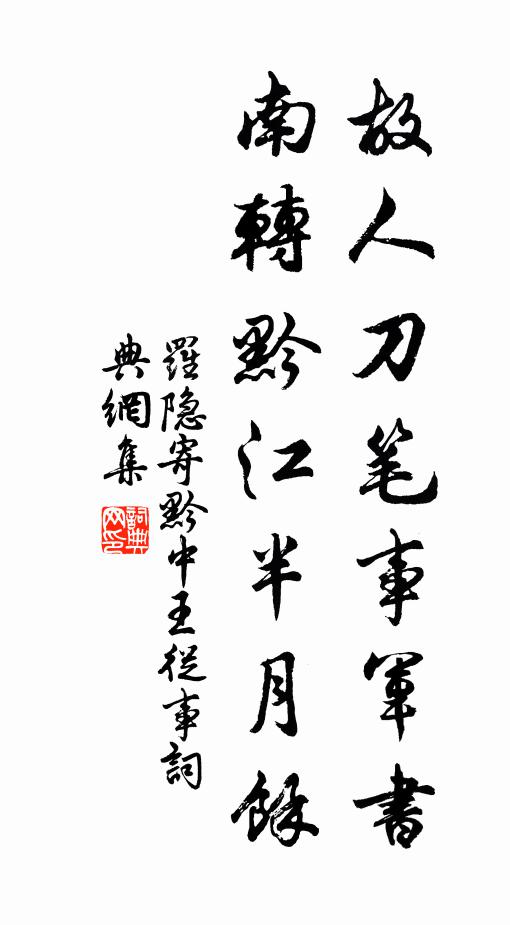 故人刀笔事軍書
南轉黔江半月餘
羅隐寄黔中王從事詞
典網集
詞典
网印